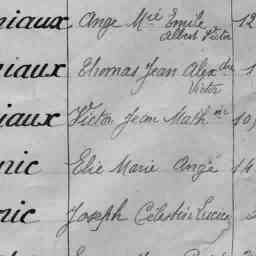 niaux Ange Mie Emile 12
Albert Victor
niaux Thomas Jean Alexdre 1
Victor
iaux Victor Jean Math in 10
nic Elie Marie Ange 14
nic Joseph Célestin Lucien